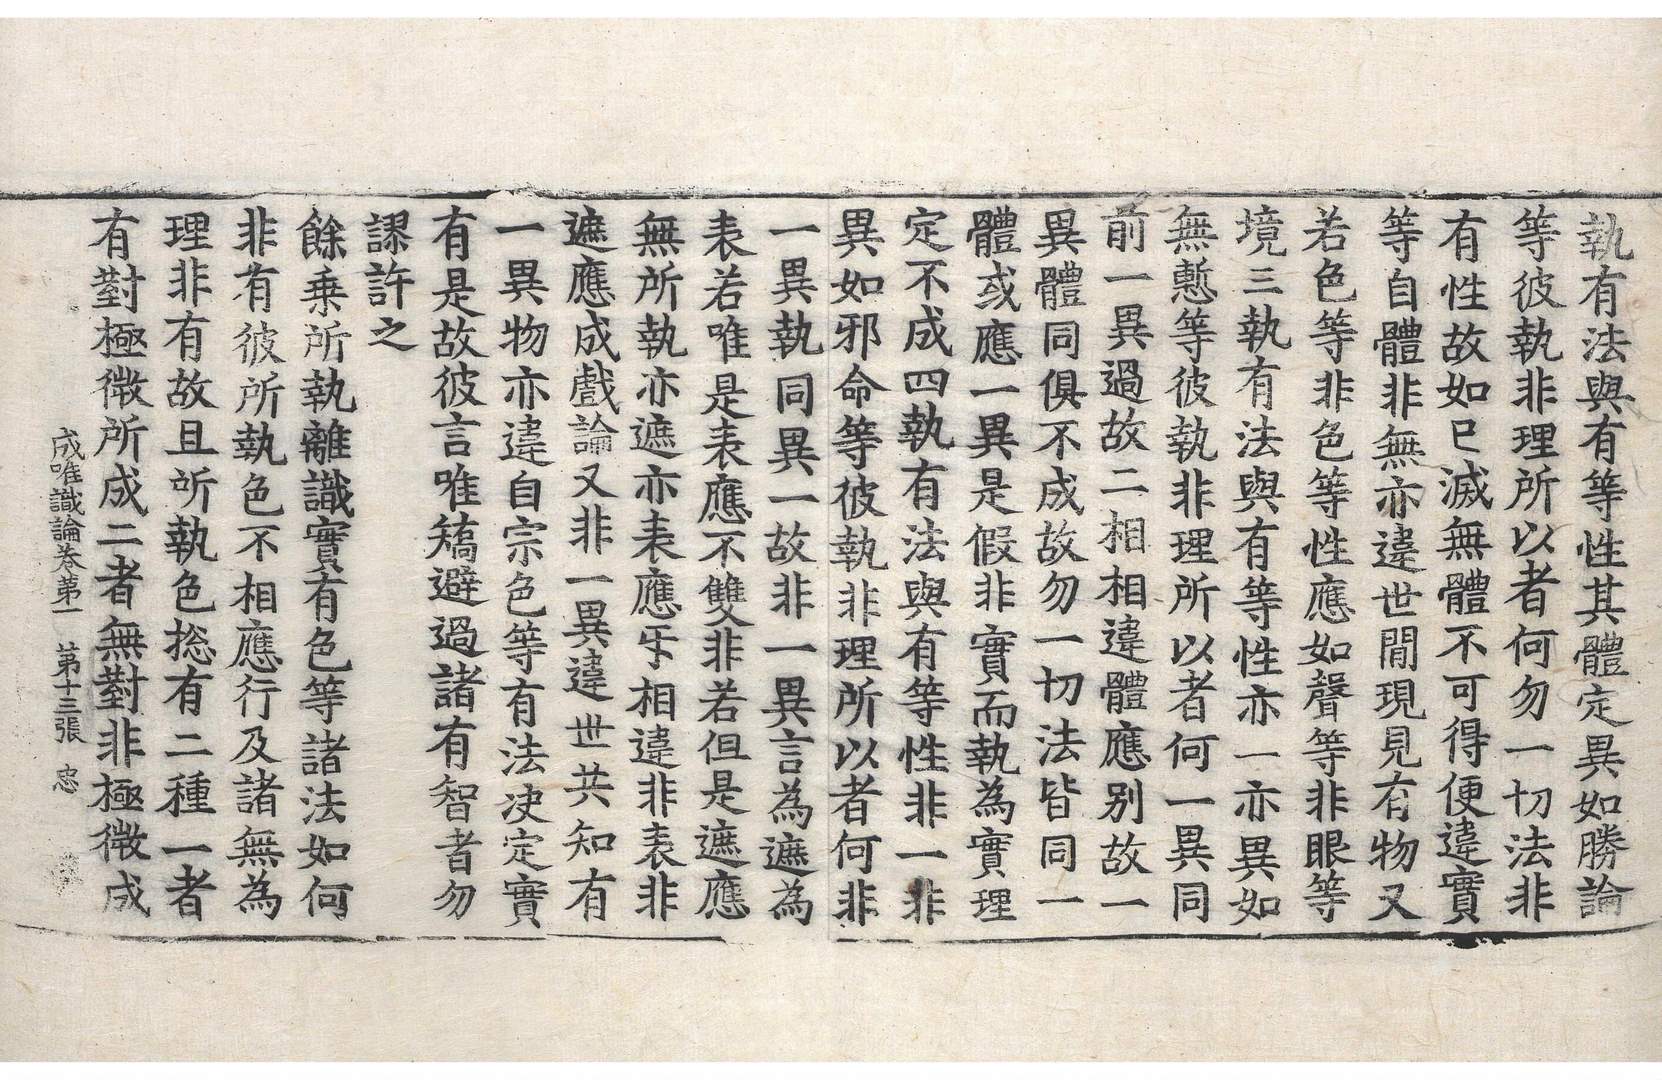 執有法與有等性其體定異如勝論
等彼執非理所以者何勿一切法非
有性故如已滅無體不可得便違實
等自體非無亦違世間現見有物又
若色等非色等性應如聲等非眼等
境三執有法與有等性亦一亦異如
無慙等彼執非理所以者何一異同
前一異過故二相相違體應別故一
異體同俱不成故勿一切法皆同一
體或應一異是假非實而執為實理
定不成四執有法與有等性非一非
異如邪命等彼執非理所以者何非
一異執同異一故非一異言為遮為
表若唯是表應不雙非若但是遮應
無所執亦遮亦表應互相違非表非
遮應成戲論又非一異違世共知有
一異物亦違自宗色等有法决定實
有是故彼言唯矯避過諸有智者勿
謬許之
餘乗所執離識實有色等諸法如何
非有彼所執色不相應行及諸無為
理非有故且所執色捴有二種一者
有對極微所成二者無對非極微成
成唯識論卷第一 第十三張 忠